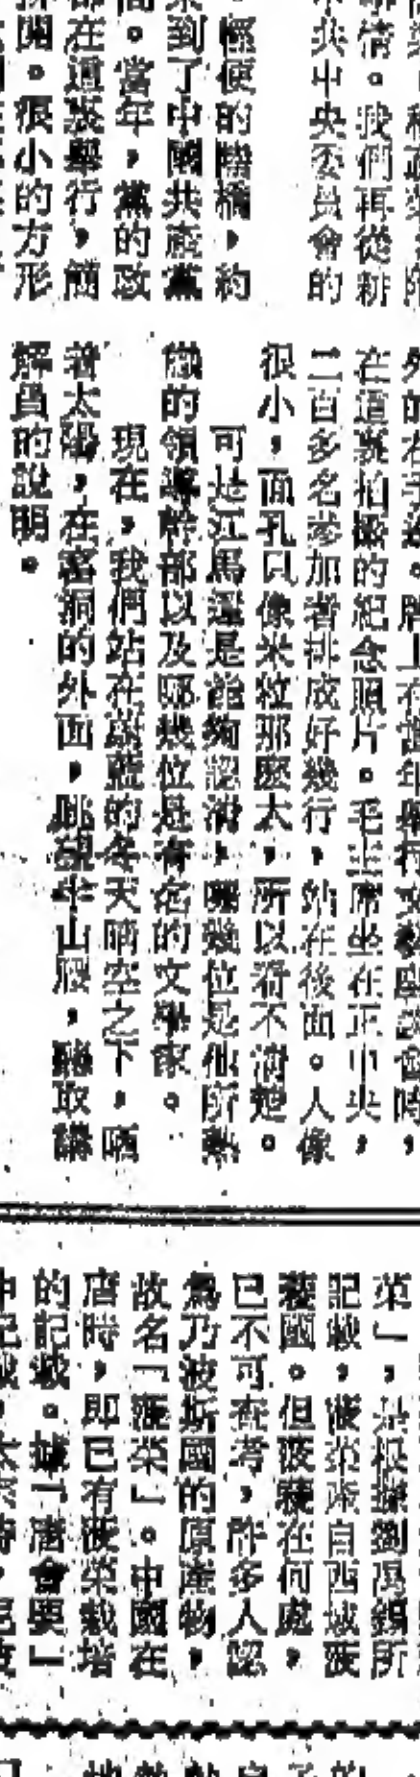 事情。我們再從新
中共中央委員會的
。輕便的橋,約
來到了中國共產黨
間。當年,黨的政
都在這裏舉行,簡
開。很小的方形
外的右手邊。牆上有當年舉行文藝座談會時,
在這裏拍攝的紀念照片。毛主席坐在正中央,
二百多名參加者排成好幾行,站在後面。人像
很小,面孔只像米粒那麼大,所以看不清楚。
可是江馬還是能夠認清,哪幾位是他所熟
識的領導幹部以及哪幾位是有名的文學家。
現在,我們站在蔚藍的冬天晴空之下,晒
着太陽,在窰洞的外面,眺望半山腰,聽取講
解員的說明。
菜」,是根據劉禹錫所
記載,菠菜產自西域菠
薐國。但菠薐在何處,
已不可查考,許多人認
為乃波斯國的原產物,
故名「菠菜」。中國在
唐時,即已有菠菜栽培
的記載。據「唐會要」